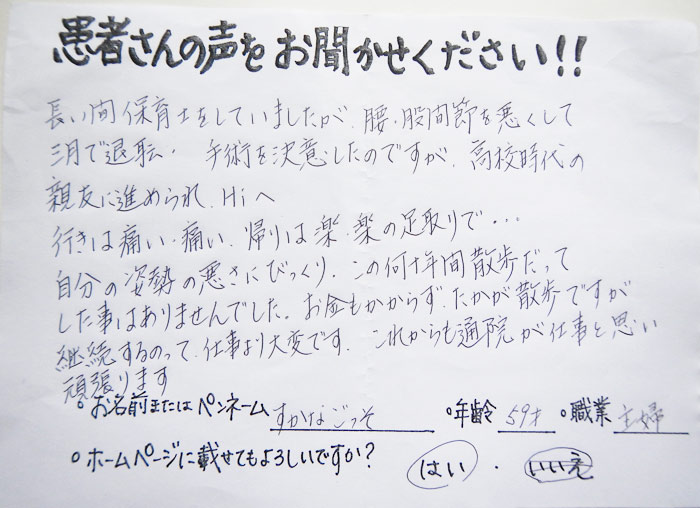 患者さんの声をお聞かせください!!
長い間保育士をしていましたが、腰・股間節を悪くして
三月で退転・手術を決意したのですが、高校時代の
親友に進められ、Hiへ
行きは痛い・痛い、帰りは楽・楽の足取りで・・・
自分の姿勢の悪さにびっくり、この何十年間散歩だって
した事はありませんでした。お金もかからず、たかが散歩ですが
継続するのって、仕事より大変です、これからも通院が仕事と思い
頑張ります
・お名前またはペンネーム すかなごっそ ・年齢 59才 ・職業 主婦
・ホームページに載せてもよろしいですか? はい ・ いいえ